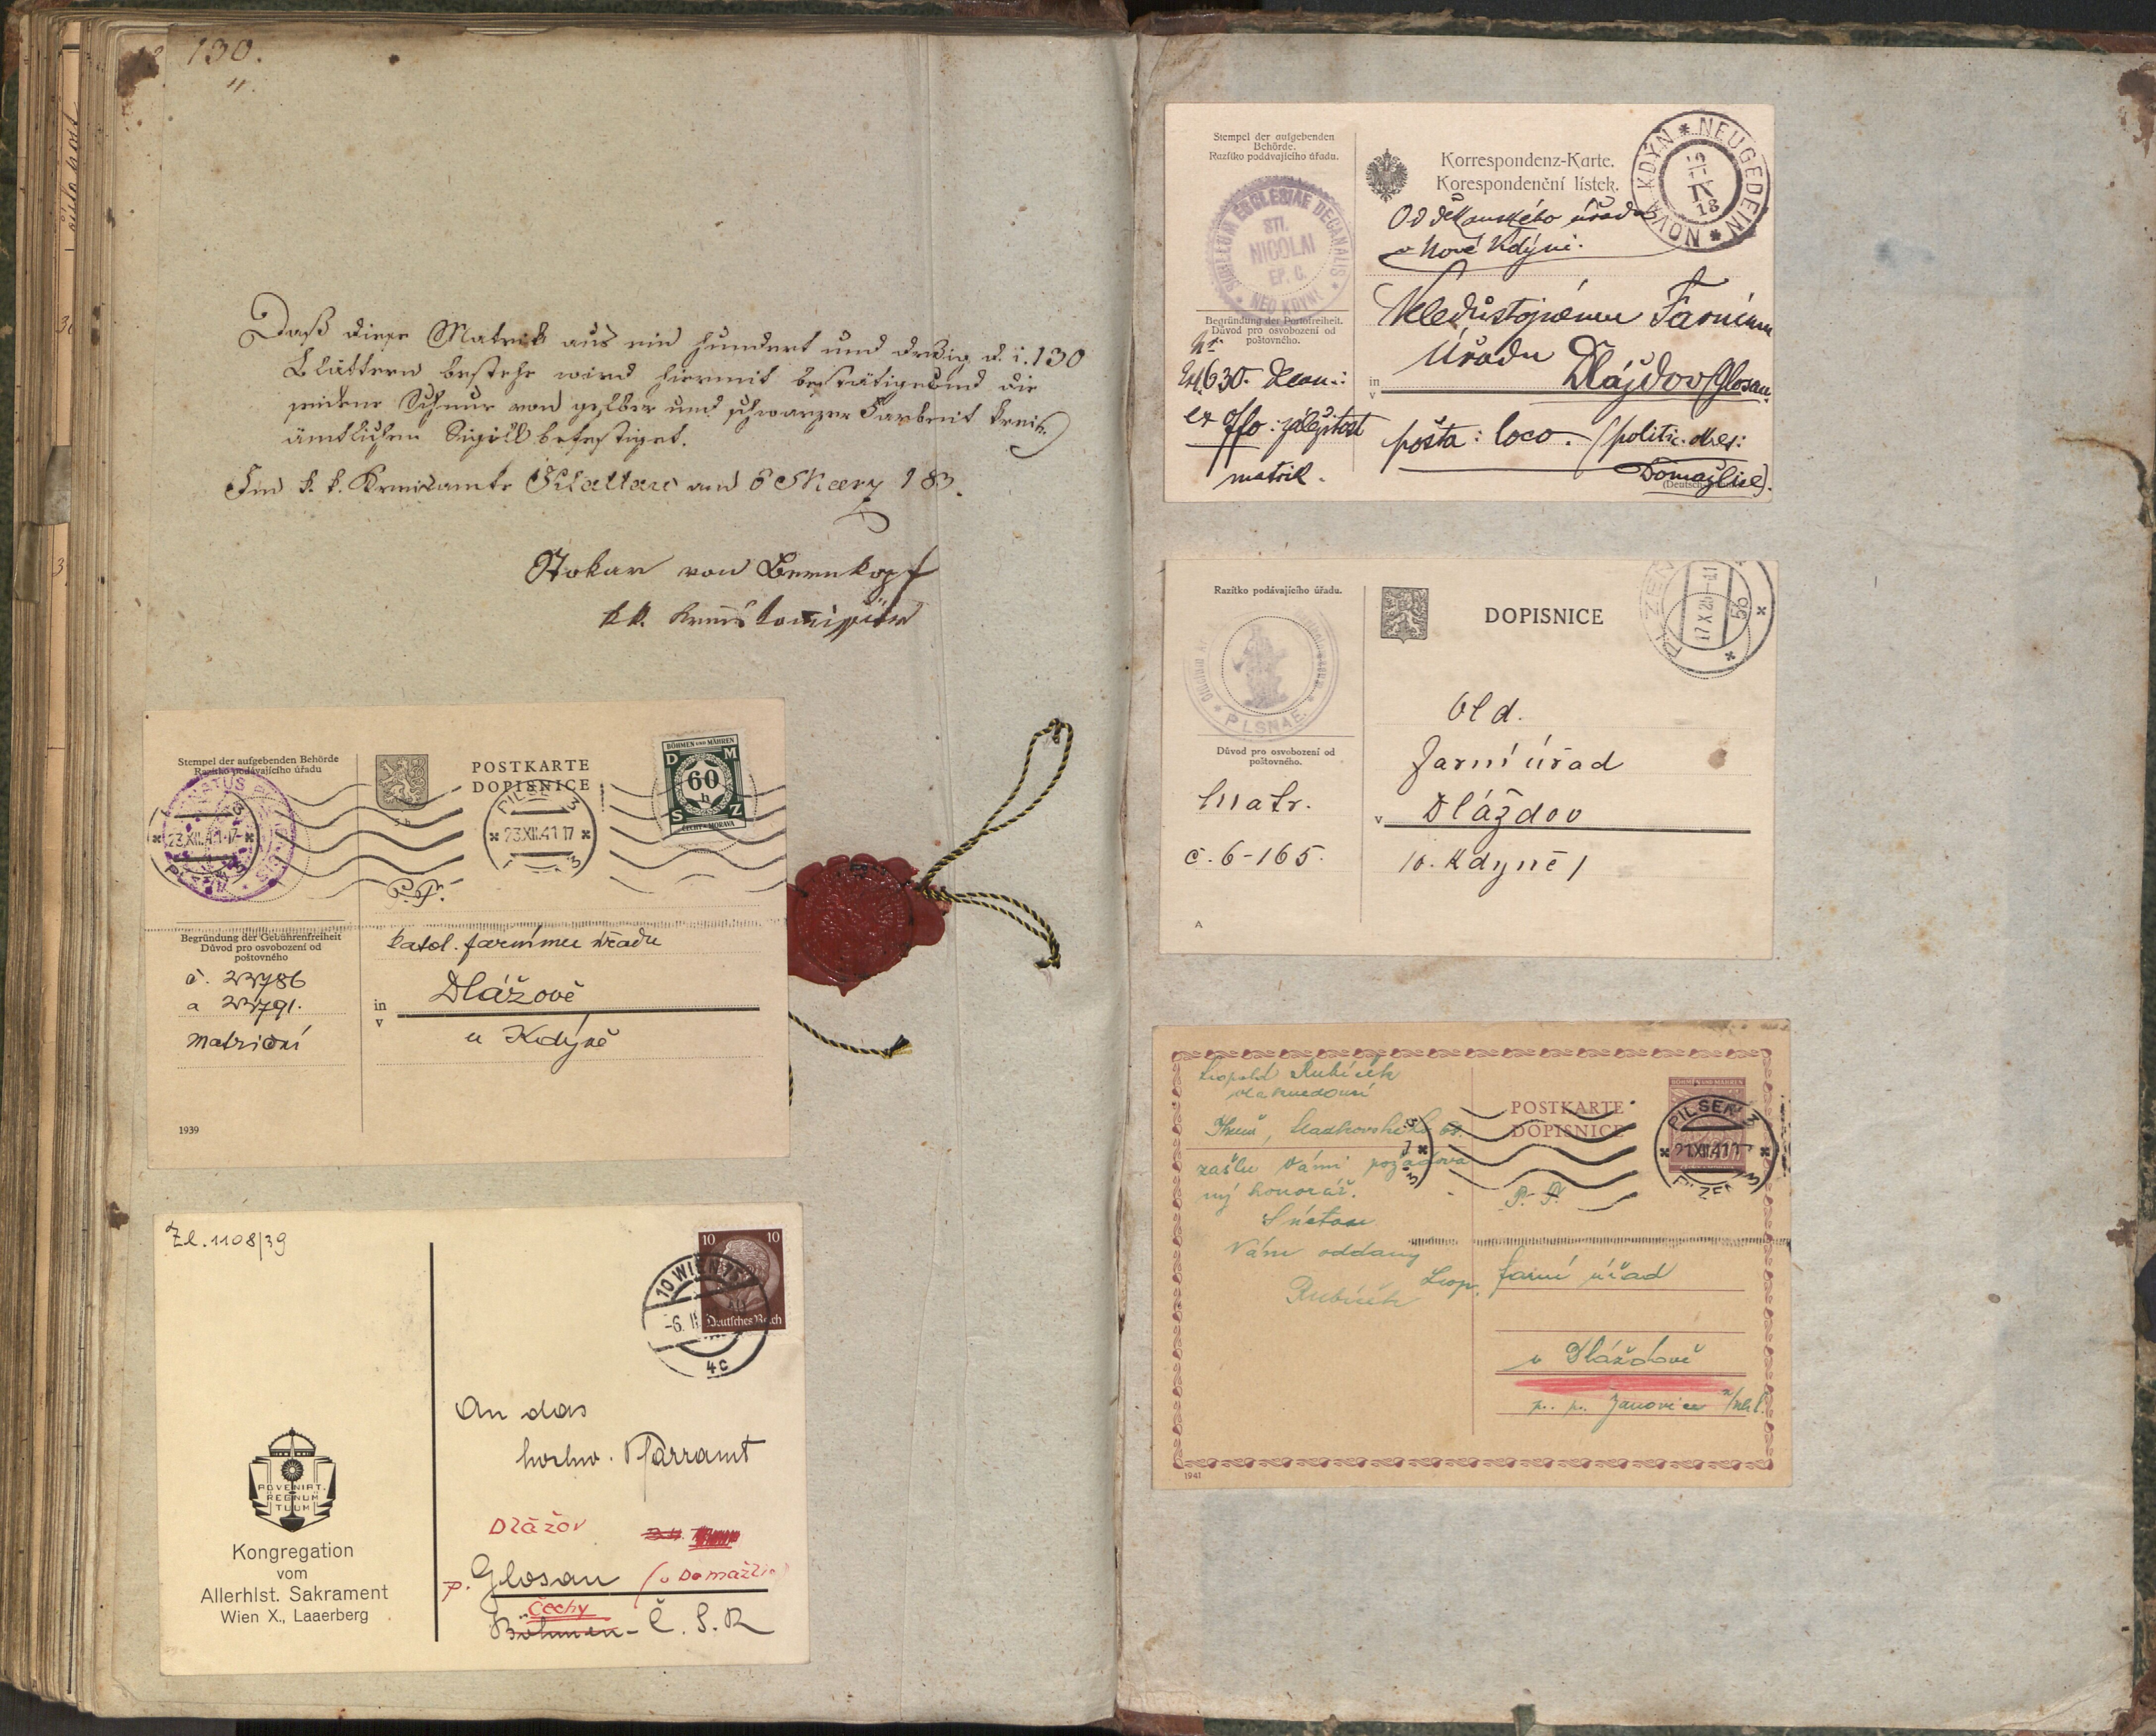 130.
Daß diese Matrik aus ein hundert und dreßig d. i. 130
Blättern bestehe wird hiermit bestätiget und die
seidene Schnur von gelber und schwarzer Farbe mit kreis-
ämtlichem Sigill befestiget.
Vom k. k. Kreisamte Klattau am 6 März 183.
Stokar von Bernkopf
kk. Kreiskomissär
Stempel der aufgebenden Behörde
Razítko podávajícího úřadu
POSTKARTE
DOPISNICE
BÖHMEN UND MÄHREN
D M
60
h
S Z
ČECHY - MORAVA
PILSEN 3
23.XII.41 17
23.XII.41 17
P. T.
Begründung der Gebührenfreiheit
Důvod pro osvobození od
poštovného
katol. farnímu úřadu
č. 22786
a 22791.
matriční
in
v
Dlážově
u Kdýně
1939
Zl. 1108/39
10 10
Deutsches Reich
10 WIEN 75
-6. II
4c
An das
hochw. Pfarramt
Dlážov
p. Glosau (u Domažlic)
Čechy
Böhmen - Č. S. R
ADVENIAT
REGNUM
TUUM
Kongregation
vom
Allerhlst. Sakrament
Wien X., Laaerberg
Stempel der aufgebenden
Behörde.
Razítko poddvajícího úřadu.
Korrespondenz-Karte.
Korespondenční lístek.
NOVA KDYN * NEUGEDEIN *
18
SIGILLUM ECCLESIAE DECANALIS
STI.
NICOLAI
EP. C.
NEO KDYNE
Od děkanského úřadu
v Nové Kdýni.
Veledůstojnému Farnímu
Úřadu Dlažďov/Glosau
Begründung der Portofreiheit.
Důvod pro osvobození od
poštovného.
630.
ex offo: záležitost
matrik.
in
v
pošta: loco. (politic. okres:
Domažlice).
Razítko podávajícího úřadu.
DOPISNICE
PLZEŇ
17 X 2
5b
PLSNAE
Důvod pro osvobození od
poštovného.
Matr.
č. 6-165.
A
Vld.
Farní úřad
v
Dlážďov
/o. Kdyně/
Leopold Rubíček
Sladkovského 60.
zašlu Vámi požadova
ný honorář.
S úctou
Vám oddaný
Leop.
Rubíček
POSTKARTE
DOPISNICE
BÖHMEN UND MÄHREN
PILSEN 3
21.XII.41 17
P. T.
farní úřad
v Dlážďově
p. p. Janovice n/Úhl.
1941